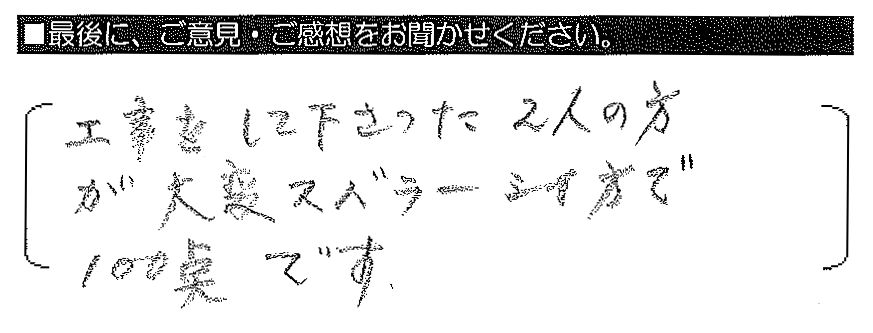 ■最後に、ご意見・ご感想をお聞かせください。
工事をして下さった2人の方
が大変スペラーな方で
100点です.